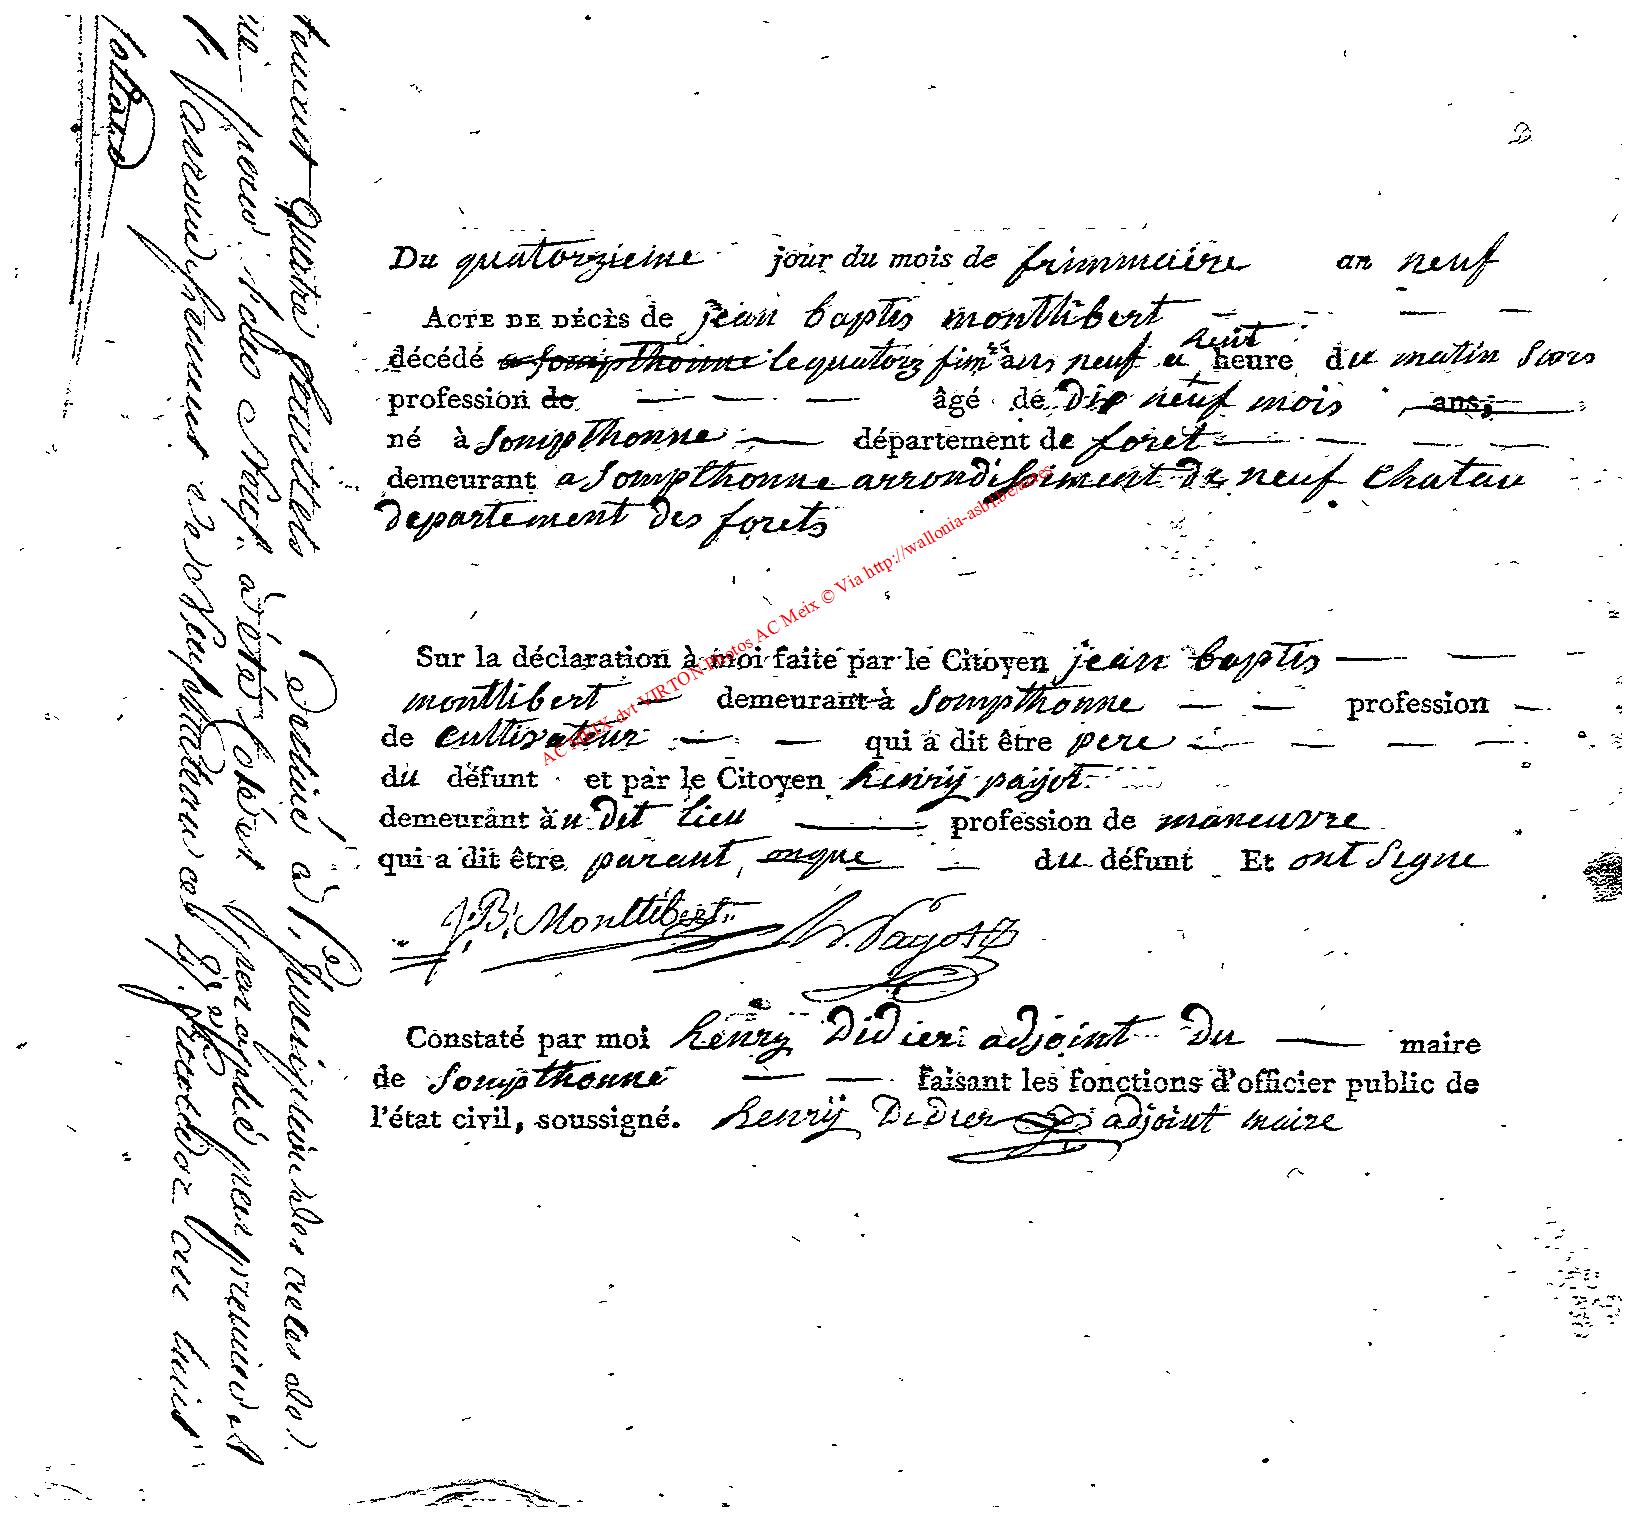 Du quatorzieme jour du mois de frimmaire an neuf
ACTE DE DÉCÈS de jean baptis montlibert
huit
décédé a Sompthonne le quatorz frim.re ans neuf a heure du matin Sans
profession de âgé de Dix neuf mois ans;
né à Sompthonne département de foret
demeurant a Sompthonne arrondissiment de neuf Chatau
departement des forets
Sur la déclaration à moi faite par le Citoyen jean baptis
montlibert demeurant à Sompthonne profession
de cultivateur qui a dit être pere
du défunt et par le Citoyen henrÿ pagot
demeurant àu dit lieu profession de maneuvre
qui a dit être parant onque du défunt Et ont Signe
J. B. Montlibert H. Pagot
Constaté par moi henrÿ Didier adjoint Du maire
de Sompthonne faisant les fonctions d'officier public de
l'état civil, soussigné. henrÿ Didier adjoint maire
quatre feuillets Destiné à l'inscription des actes de
pour l'an Neuf, a été Coté et paraphé par premier et
arrondissement de Neufchateau cel an huit
AC MEIX dvt VIRTON Photos AC Meix © Via http://wallonia-asbl.be/actes